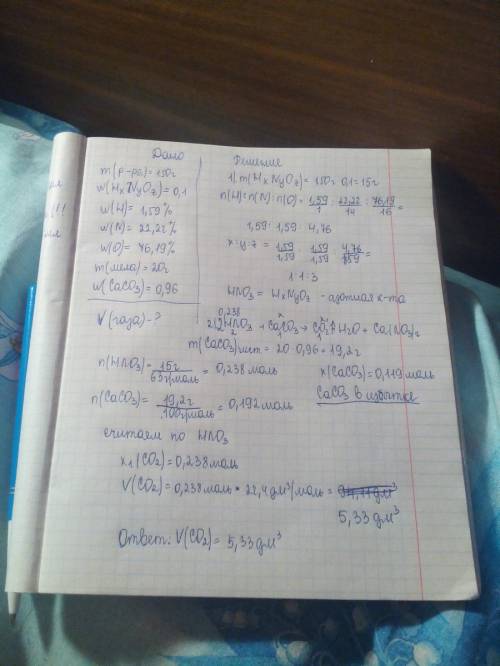 Дано
m(р-ра)=150г
w(HxNyOz)=0,1
w(H)=1,59%
w(N)=22,22%
w(O)=76,19%
m(мела)=20г
w(CaCO3)=0,96
V(газа)-?
Решение
1) m(HxNyOz)=150г·0,1=15г
n(H)=n(N):n(O)=1,59/1:22,22/14:76,19/16=
1,59:1,59:4,76
x:y:z=1,59/1,59:1,59/1,59:4,76/1,59=
1:1:3
HNO3=HxNyOz-азотная к-та
0,238 x x1
2)2HNO3+CaCO3→CO2+H2O+Ca(NO3)2
m(CaCO3)чист.=20·0,96=19,2г
n(HNO3)=15г/63г/моль=0,238моль
x(CaCO3)=0,119моль
n(CaCO3)=19,2г/100г/моль=0,192моль
CaCO3 в избытке
считаем по HNO3
x1(CO2)=0,238моль
V(CO2)=0,238моль*22,4дм³/моль=
5,33дм³
Ответ: V(CO2)=5,33дм³